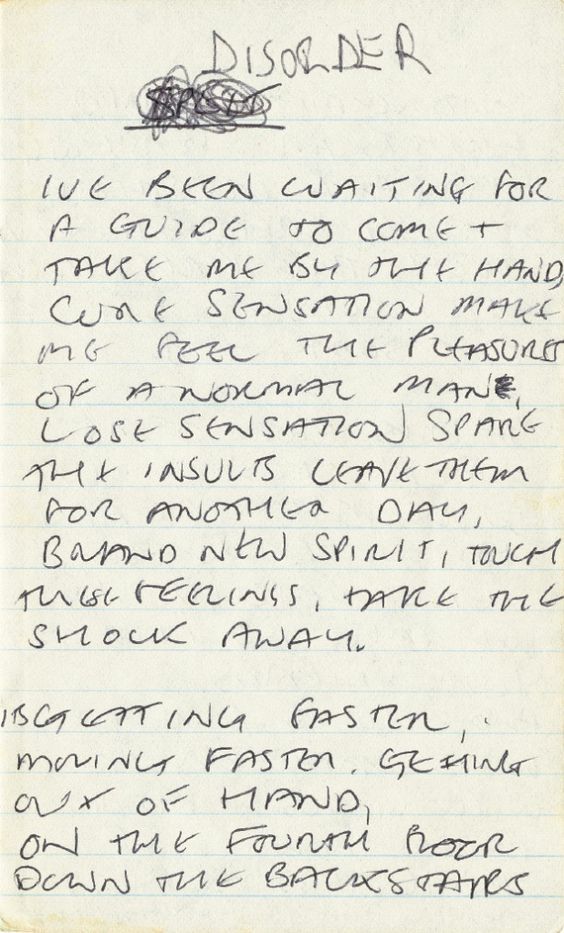 DISORDER
IVE BEEN WAITING FOR
A GUIDE TO COME +
TAKE ME BY THE HAND,
CURE SENSATION MAKE
ME FEEL THE PLEASURES
OF A NORMAL MAN,
LOSE SENSATION SPARE
THE INSULTS LEAVE THEM
FOR ANOTHER DAY,
BRAND NEW SPIRIT, TOUCH
THESE FEELINGS, TAKE THE
SHOCK AWAY.
GETTING FASTER,
MOVING FASTER. GETTING
OUT OF HAND,
ON THE FOURTH FLOOR
DOWN THE BACKSTAIRS